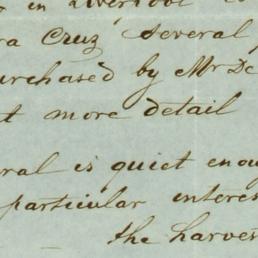 in Liverpool
ra Cruz several
urchased by Mr De
t more detail
ral is quiet enou
particular interes
the harves